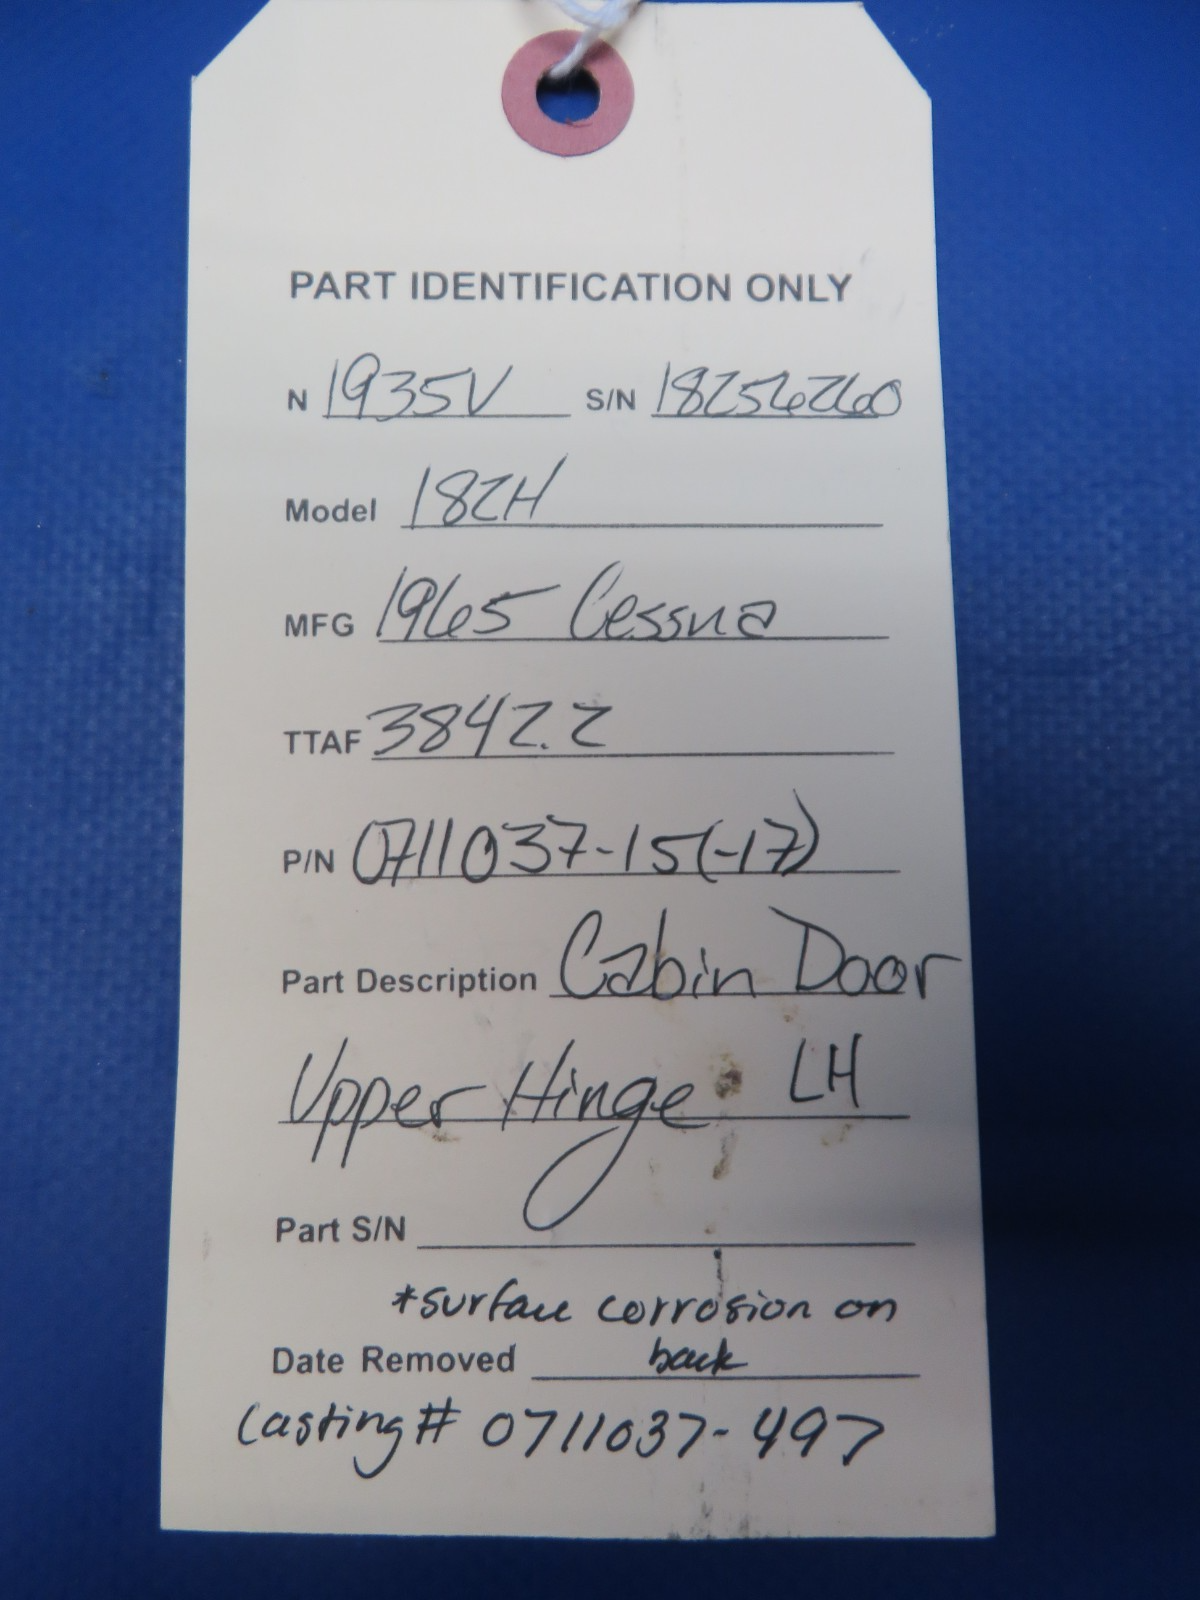 PART IDENTIFICATION ONLY
N 1935V S/N 18256260
Model 182H
MFG 1965 Cessna
TTAF 3842.2
P/N 0711037-15(-17)
Part Description Cabin Door
Upper Hinge LH
Part S/N
*surface corrosion on
Date Removed back
Casting# 0711037-497